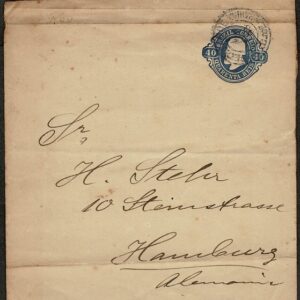 BRAZIL CORREIO
40 40
QUARENTA REIS
Sr.
H. Stehr
10 Steinstrasse
Hamburg
Alemania